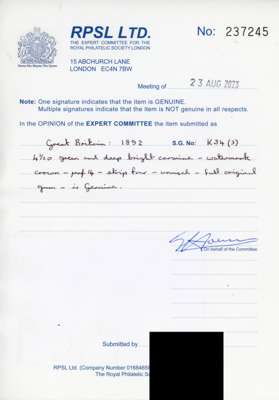 RPSL LTD.
THE EXPERT COMMITTEE FOR THE
ROYAL PHILATELIC SOCIETY LONDON
No: 237245
15 ABCHURCH LANE
LONDON EC4N 7BW
Meeting of 23 AUG 2023
Note: One signature indicates that the item is GENUINE.
Multiple signatures indicate that the item is NOT genuine in all respects.
In the OPINION of the EXPERT COMMITTEE the item submitted as
Great Britain: 1892 S.G. No: K34 (3)
4½D green and deep bright carmine - watermark
crown - perf 14 - strip four - unused - full original
gum - is Genuine.
On behalf of the Committee
Submitted by
RPSL Ltd. (Company Number
The Royal Philatelic